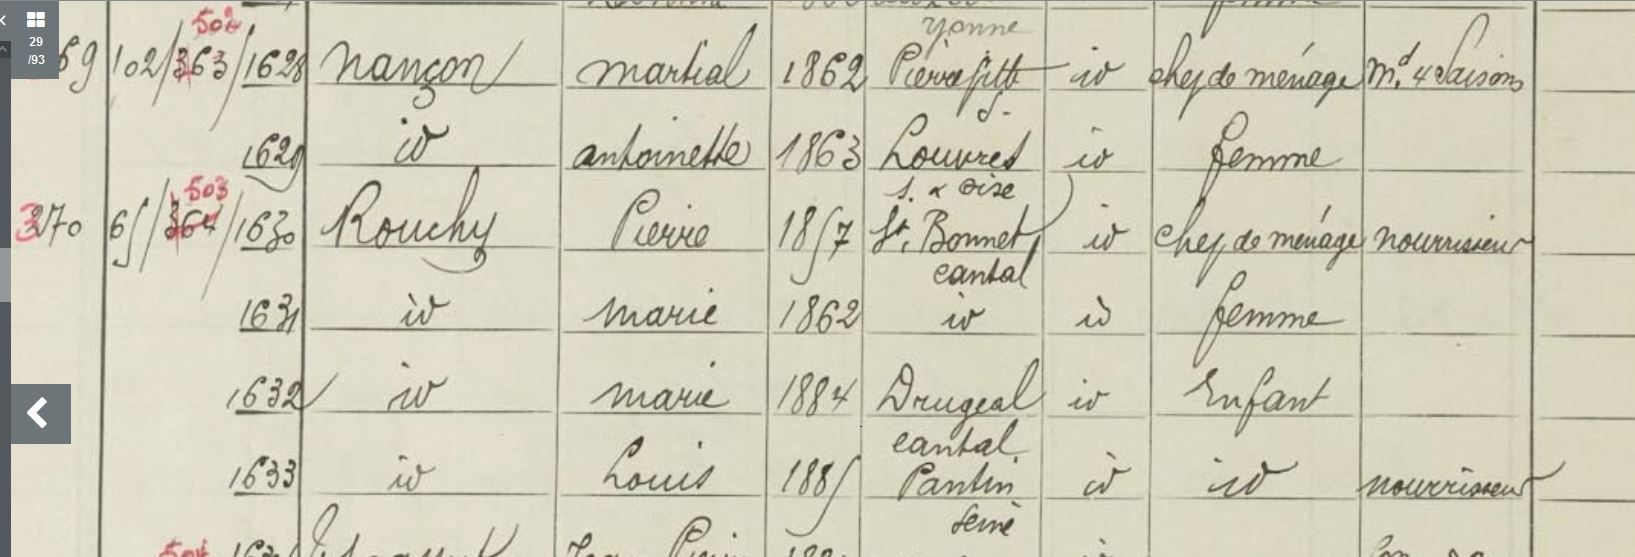 29
/93
Yonne
502
69 102/363/1628 Nançon Martial 1862 Pierrefitte id chef de ménage Md 4 Saisons
S.
1629 id Antoinette 1863 Louvres id femme
503 S. & Oise
370 65/364/1630 Rouchy Pierre 1857 St. Bonnet id chef de ménage nourrisseur
cantal
1631 id Marie 1862 id id femme
1632 id Marie 1884 Drugeal id Enfant
cantal
1633 id Louis 1885 Pantin id id nourrisseur
Seine
504 Jean